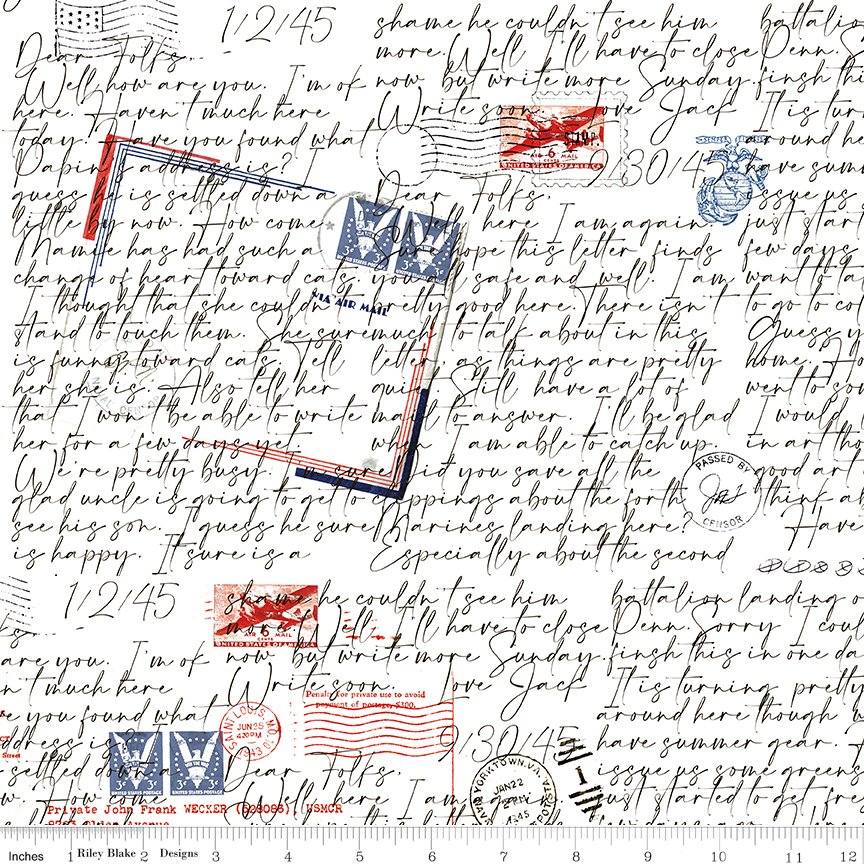 1/2/45
Dear Folks.
Well how are you. I'm ok
here. Haven't much here
today. Have you found what
Dapin's address is?
guess he is settled down a
little by now. How come
Mamie has had such a
change of heart toward cats.
I thought that she couldn't
stand to touch them. She sure
is funny toward cats. Tell
her she is. Also tell her
that I won't be able to write
her for a few days yet.
We're pretty busy. I'm sure
glad uncle is going to get to
see his son. I guess he sure
is happy. It sure is a
shame he couldn't see him
more. Well I'll have to close
now but write more Sunday.
Write soon. Love Jack
9/30/4
Dear Folks.
Well here I am again.
Sure hope this letter finds
you all safe and well. I am
pretty good here. There isn't
much to talk about in this
letter as things are pretty
quiet. Still have a lot of
mail to answer. I'll be glad
when I am able to catch up.
Did you save all the
clippings about the forth
Marines landing here?
Especially about the second
battalion
Denn. S
finsh thi
It is turn
around he
have sum
issue us
just start
few days.
want to ta
to go to co
Guess y
home. H
went to so
I would
in art th
good art
think a
Have
AIR 6 MAIL
CENTS
UNITED STATES OF AMERICA
SEMPER FIDELIS
UNITED STATES POSTAGE
VIA AIR MAIL
PASSED BY
CENSOR
1/2/45
are you. I'm ok
n't much here
e you found what
ddress is?
settled down a
now. How come
shame he couldn't see him
more. Well I'll have to close
now but write more Sunday.
Write soon. Love Jack
9/30/45
Dear Folks.
Well here I am again.
battalion landing o
Denn. Sorry I coul
finsh this in one da
It is turning pretty
around here though
have summer gear.
issue us some greens
just started to get free
AIR 6 MAIL
CENTS
UNITED STATES OF AMERICA
Penalty for private use to avoid
payment of postage, $300.
SAINT LOUIS, MO.
JUN 25
430PM
1943
Street
3¢ 3¢
UNITED STATES POSTAGE
YORKTOWN, VA.
JAN 22
1945
Private John Frank WECKER (528086), USMCR
Inches 1 2 3 4 5 6 7 8 9 10 11 12
Riley Blake Designs